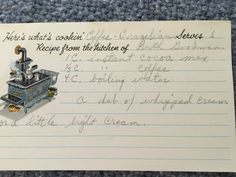 Here's what's cookin' Coffee - Brazilian Serves 6
Recipe from the kitchen of Ruth
1 C. instant cocoa mix
1/2 C. " coffee
4 C. boiling water
a dab of whipped cream
or a little light cream.